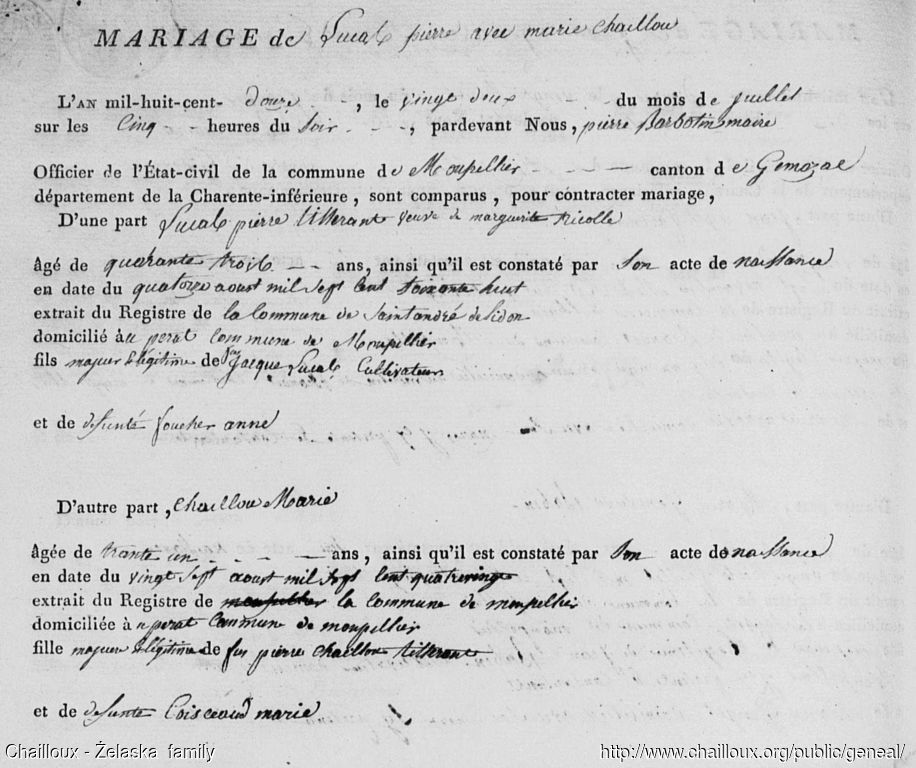 MARIAGE de Lucas pierre avec marie Chaillou
L'AN mil-huit-cent- douze - - -, le vingt deux - - - du mois de juillet
sur les Cinq - - heures du soir - - -, pardevant Nous, pierre Barbotin maire
Officier de l'État-civil de la commune de Monpellier - - - - canton de Gemozac
département de la Charente-inférieure, sont comparus, pour contracter mariage,
D'une part Lucas pierre titserant veuve de marguerite
âgé de quarante trois - - ans, ainsi qu'il est constaté par son acte de naissance
en date du quatorze aoust mil sept cent soixante huit
extrait du Registre de la Commune de Saint andré de lidon
domicilié à u perat Commune de Monpellier
fils majeur & légitime de feu Jacque Lucas Cultivateur
et de defunte foucher anne
D'autre part, Chaillou Marie
âgée de trante un - - - - ans, ainsi qu'il est constaté par son acte de naissance
en date du vingt sept aoust mil sept cent quatrevingt
extrait du Registre de la Commune de monpellier
domiciliée à u perat Commune de monpellier
fille majeur & légitime de feu pierre chaillou titserant
et de defunte Coisceaud marie
Chailloux - Żelaska family
http://www.chailloux.org/public/geneal/